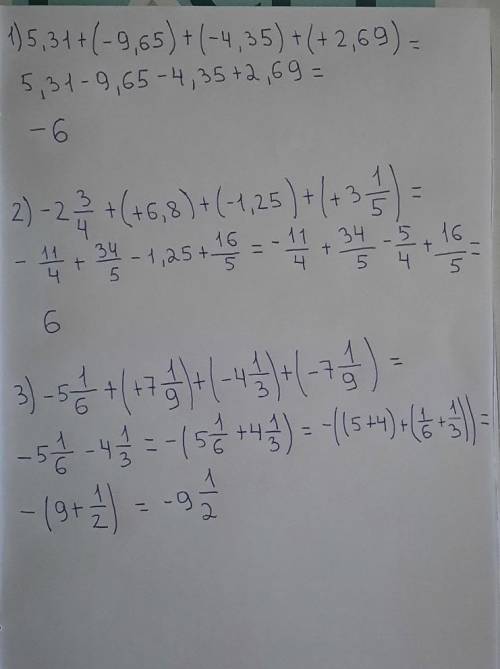 1) 5,31 + (-9,65) + (-4,35) + (+2,69) =
5,31 - 9,65 - 4,35 + 2,69 =
-6
2) -2 3/4 + (+6,8) + (-1,25) + (+3 1/5) =
- 11/4 + 34/5 - 1,25 + 16/5 = - 11/4 + 34/5 - 5/4 + 16/5 =
6
3) -5 1/6 + (+7 1/9) + (-4 1/3) + (-7 1/9) =
-5 1/6 - 4 1/3 = -(5 1/6 + 4 1/3) = -((5+4) + (1/6 + 1/3)) =
-(9 + 1/2) = -9 1/2